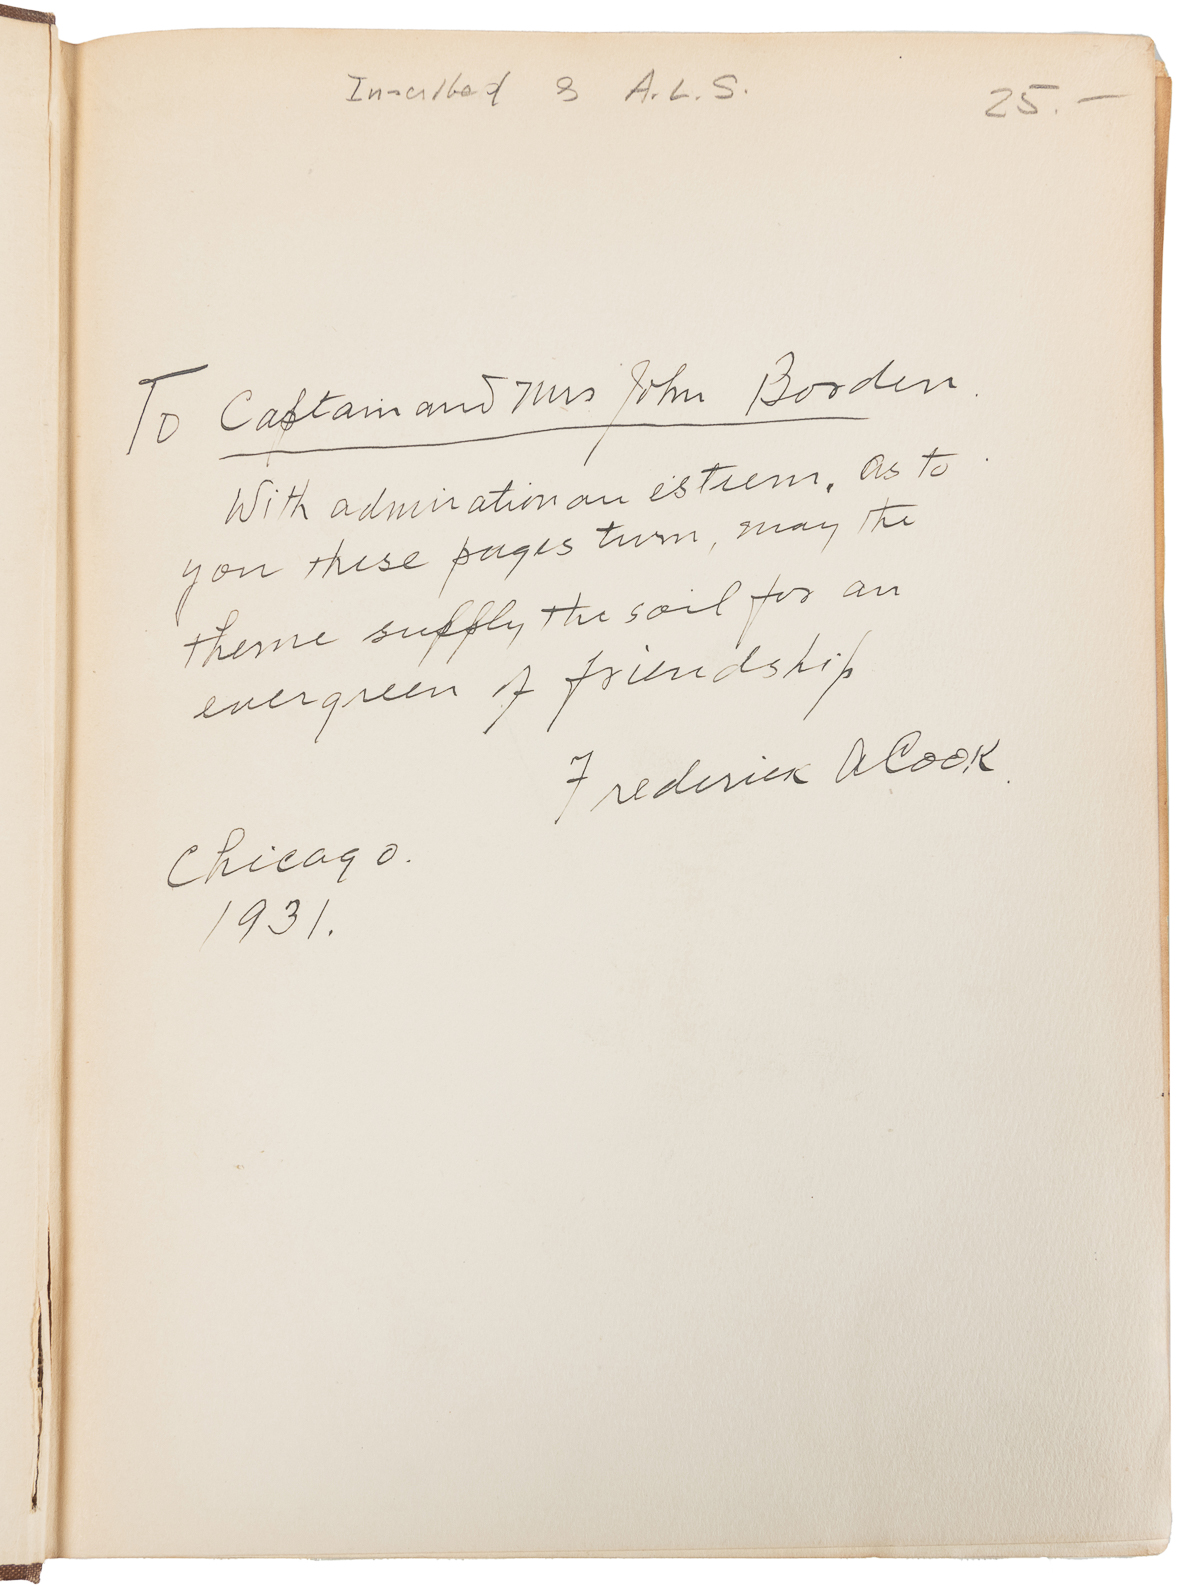 Inscribed & A.L.S.
25.—
To Captain and Mrs John Borden.
With admiration an esteem. As to
you these pages turn, may the
theme supply the soil for an
evergreen of friendship
Frederick A Cook.
Chicago.
1931.